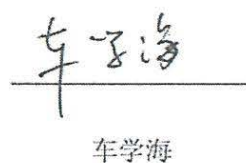 车学海
车学海